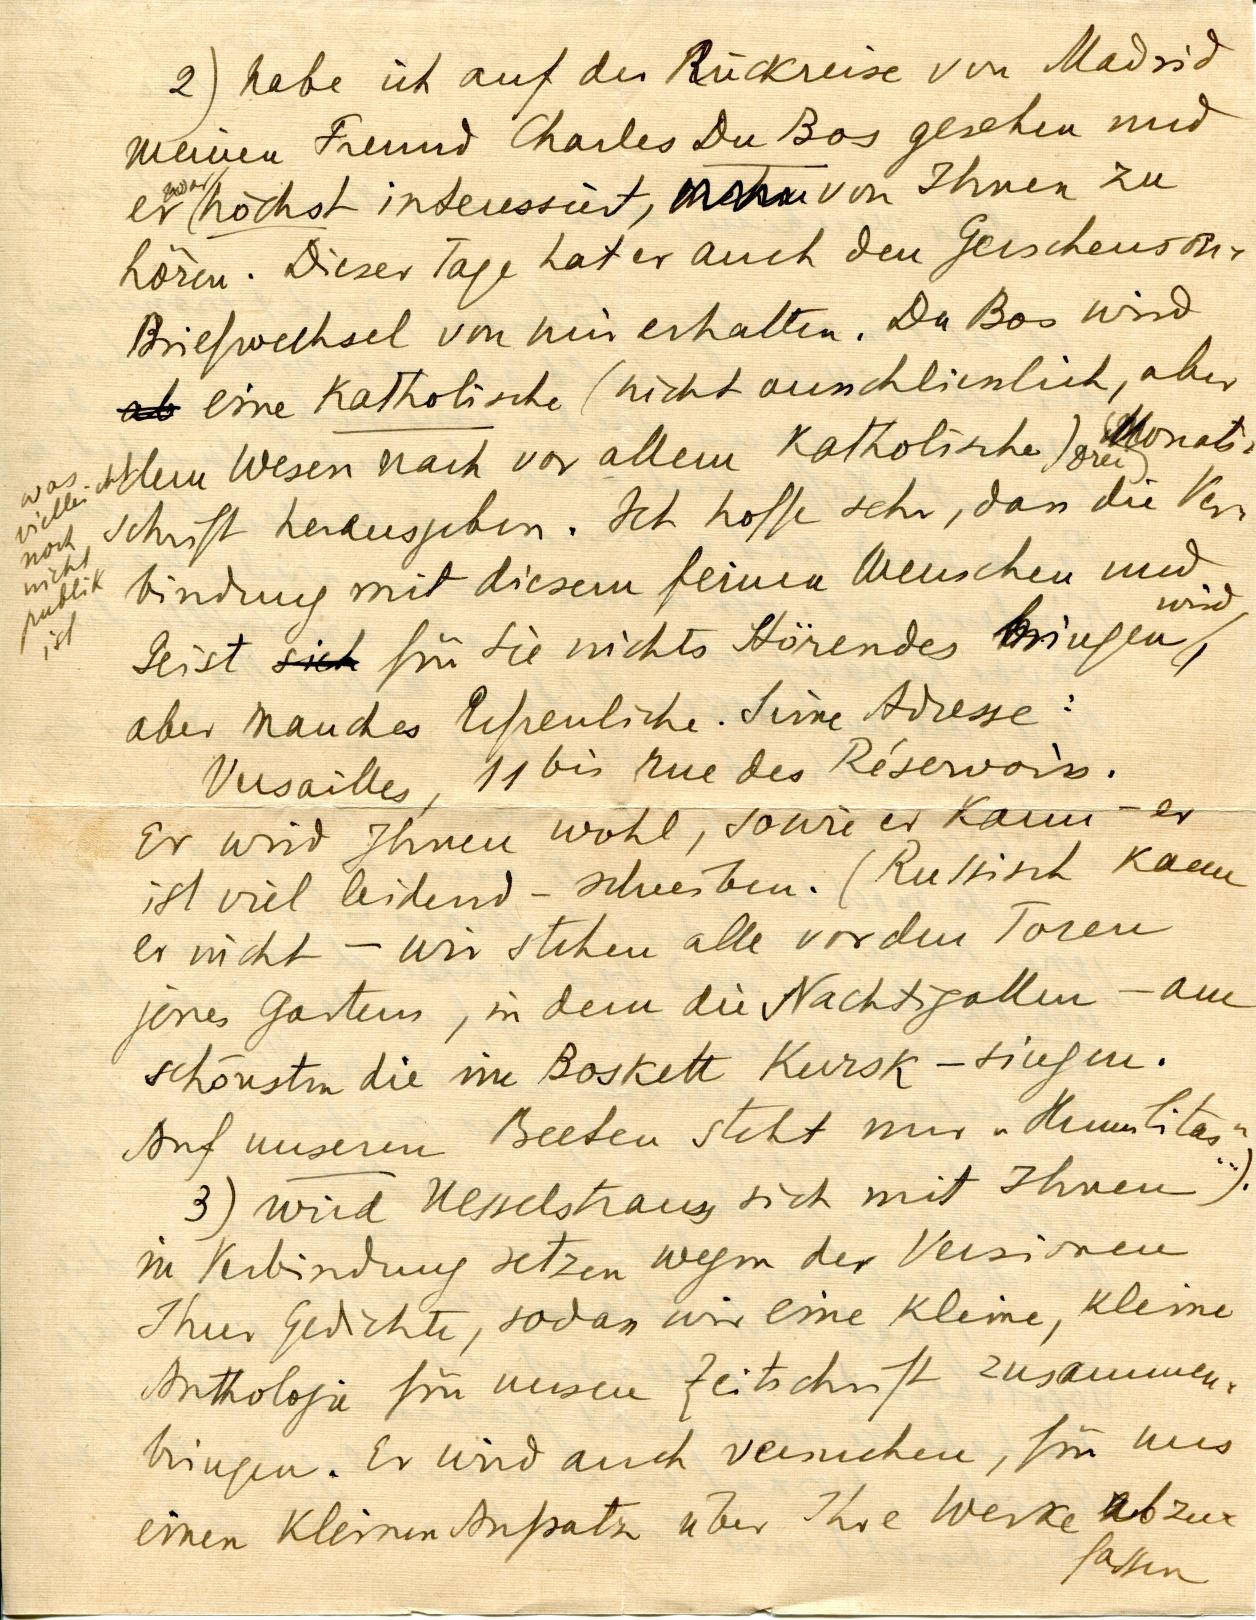 2) habe ich auf der Rückreise von Madrid
meinen Freund Charles Du Bos gesehen und
er war höchst interessiert, von Ihnen zu
hören. Dieser Tage hat er auch den Gerschenson-
Briefwechsel von mir erhalten. Du Bos wird
ab eine katholische (nicht ausschliesslich, aber
dem Wesen nach vor allem katholische) (drei) Monats-
was vielleicht noch nicht publik ist
schrift herausgeben. Ich hoffe sehr, dass die Ver-
bindung mit diesem feinen Menschen und
Geist sich für Sie nichts Störendes bringen wird,
aber manches Erfreuliche. Seine Adresse:
Versailles, 11 bis rue des Réservoirs.
Er wird Ihnen wohl, sowie er kann – er
ist viel leidend – schreiben. (Russisch kann
er nicht – wir stehen alle vor den Toren
jenes Gartens, in dem die Nachtigallen – am
schönsten die im Boskett Kursk – singen.
Auf unseren Beeten steht nur „Humilitas"..).
3) wird Nesselstrauss sich mit Ihnen
in Verbindung setzen wegen der Versionen
Ihrer Gedichte, sodass wir eine kleine, kleine
Anthologie für unsere Zeitschrift zusammen-
bringen. Er wird auch versuchen, für uns
einen kleinen Aufsatz über Ihre Werke abzu-
fassen